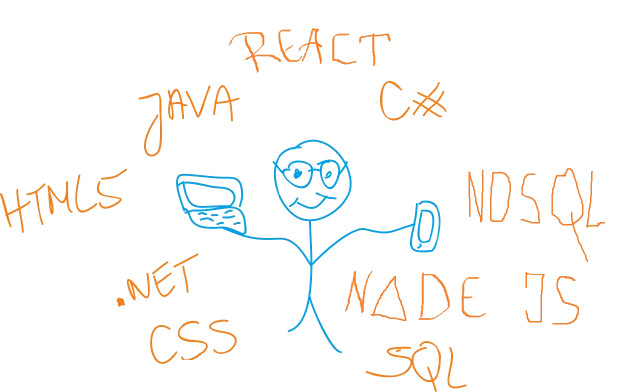 REACT
JAVA
C#
HTML5
NOSQL
.NET
NODE JS
CSS
SQL